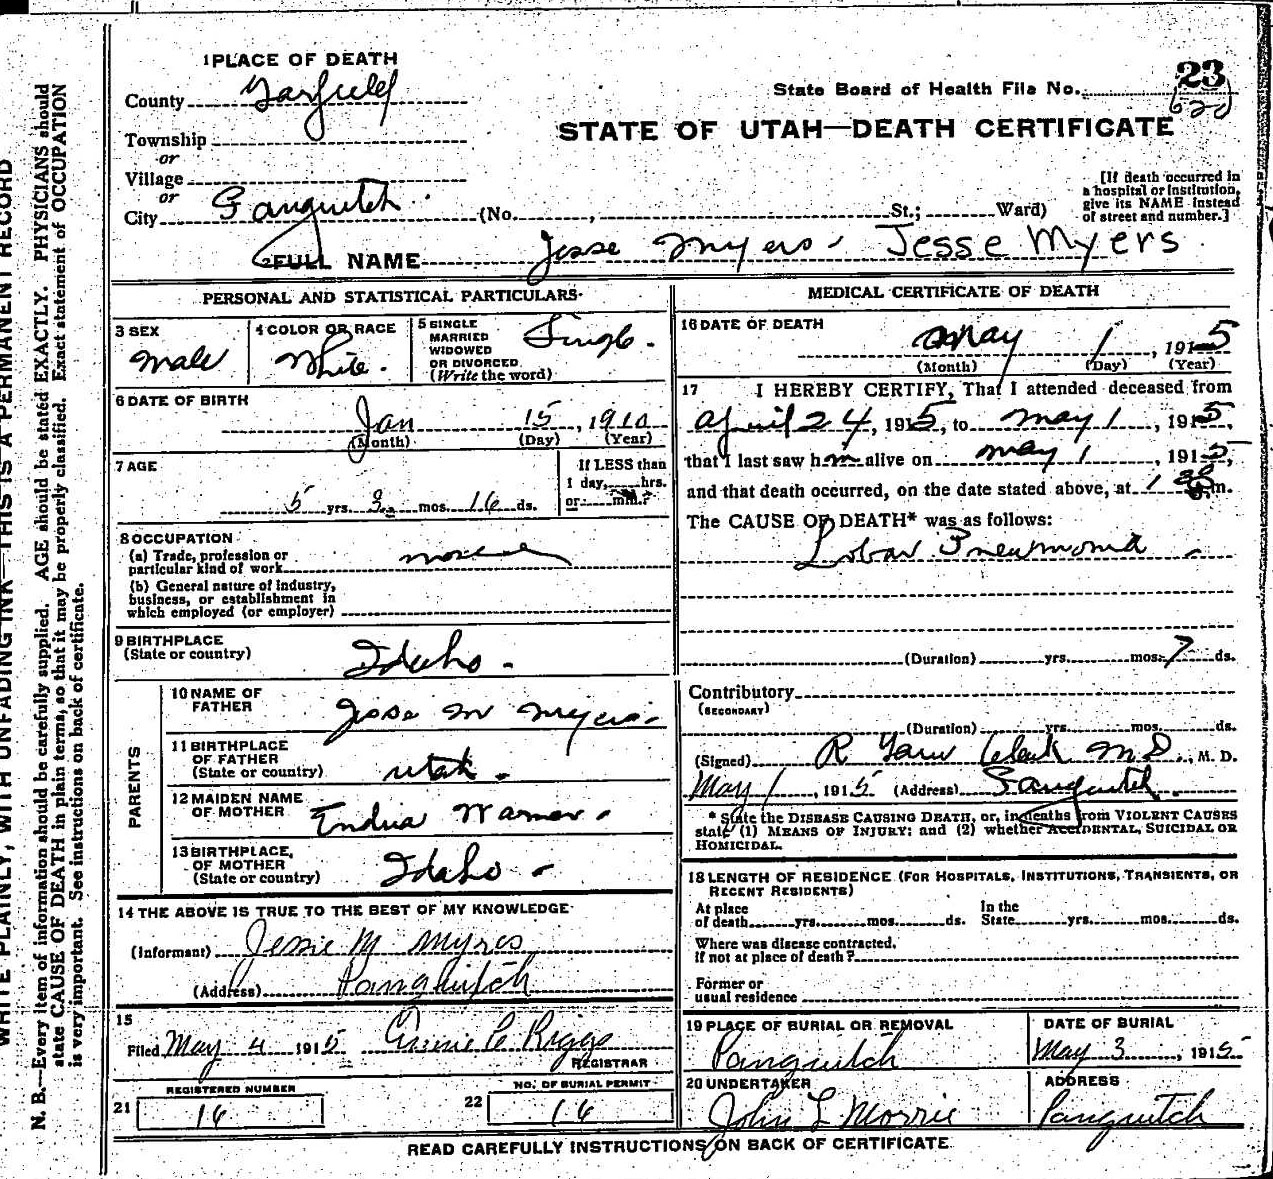 1 PLACE OF DEATH
County Garfield
Township
or
Village
or
City Panguitch (No. , St.; Ward)
State Board of Health File No. 23
620
STATE OF UTAH—DEATH CERTIFICATE
[If death occurred in
a hospital or institution,
give its NAME instead
of street and number.]
2 FULL NAME Jesse Myers. Jesse Myers
PERSONAL AND STATISTICAL PARTICULARS
3 SEX
Male
4 COLOR OR RACE
White.
5 SINGLE
MARRIED
WIDOWED
OR DIVORCED
(Write the word)
Single.
6 DATE OF BIRTH
Jan 15, 1910
(Month) (Day) (Year)
7 AGE
5 yrs. 3 mos. 16 ds.
If LESS than
1 day, hrs.
or min.?
8 OCCUPATION
(a) Trade, profession or
particular kind of work
(b) General nature of industry,
business, or establishment in
which employed (or employer)
9 BIRTHPLACE
(State or country)
Idaho.
PARENTS
10 NAME OF
FATHER
Jesse M Myers
11 BIRTHPLACE
OF FATHER
(State or country)
Utah.
12 MAIDEN NAME
OF MOTHER
Warner.
13 BIRTHPLACE,
OF MOTHER
(State or country)
Idaho
14 THE ABOVE IS TRUE TO THE BEST OF MY KNOWLEDGE
(Informant) Jessie M Myres
(Address) Panguitch
15
Filed May 4 1915 C Riggs
REGISTRAR
REGISTERED NUMBER
21 16
NO. OF BURIAL PERMIT
22 16
MEDICAL CERTIFICATE OF DEATH
16 DATE OF DEATH
May 1, 1915
(Month) (Day) (Year)
17 I HEREBY CERTIFY, That I attended deceased from
April 24, 1915, to May 1, 1915,
that I last saw him alive on May 1, 1915,
and that death occurred, on the date stated above, at 1 m.
The CAUSE OF DEATH* was as follows:
Lobar Pneumonia
(Duration) yrs. mos. 7 ds.
Contributory
(SECONDARY)
(Duration) yrs. mos. ds.
(Signed) R Clark M D., M. D.
May 1, 1915 (Address) Panguitch.
* State the DISEASE CAUSING DEATH, or, in deaths from VIOLENT CAUSES
state (1) MEANS OF INJURY; and (2) whether ACCIDENTAL, SUICIDAL OR
HOMICIDAL.
18 LENGTH OF RESIDENCE (FOR HOSPITALS, INSTITUTIONS, TRANSIENTS, OR
RECENT RESIDENTS)
At place
of death yrs. mos. ds.
In the
State yrs. mos. ds.
Where was disease contracted,
if not at place of death?
Former or
usual residence
19 PLACE OF BURIAL OR REMOVAL
Panguitch
DATE OF BURIAL
May 3, 1915
20 UNDERTAKER
John L Morris
ADDRESS
Panguitch
READ CAREFULLY INSTRUCTIONS ON BACK OF CERTIFICATE
WRITE PLAINLY, WITH UNFADING INK—THIS IS A PERMANENT RECORD
N. B.—Every item of information should be carefully supplied. AGE should be stated EXACTLY. PHYSICIANS should
state CAUSE OF DEATH in plain terms, so that it may be properly classified. Exact statement of OCCUPATION
is very important. See instructions on back of certificate.